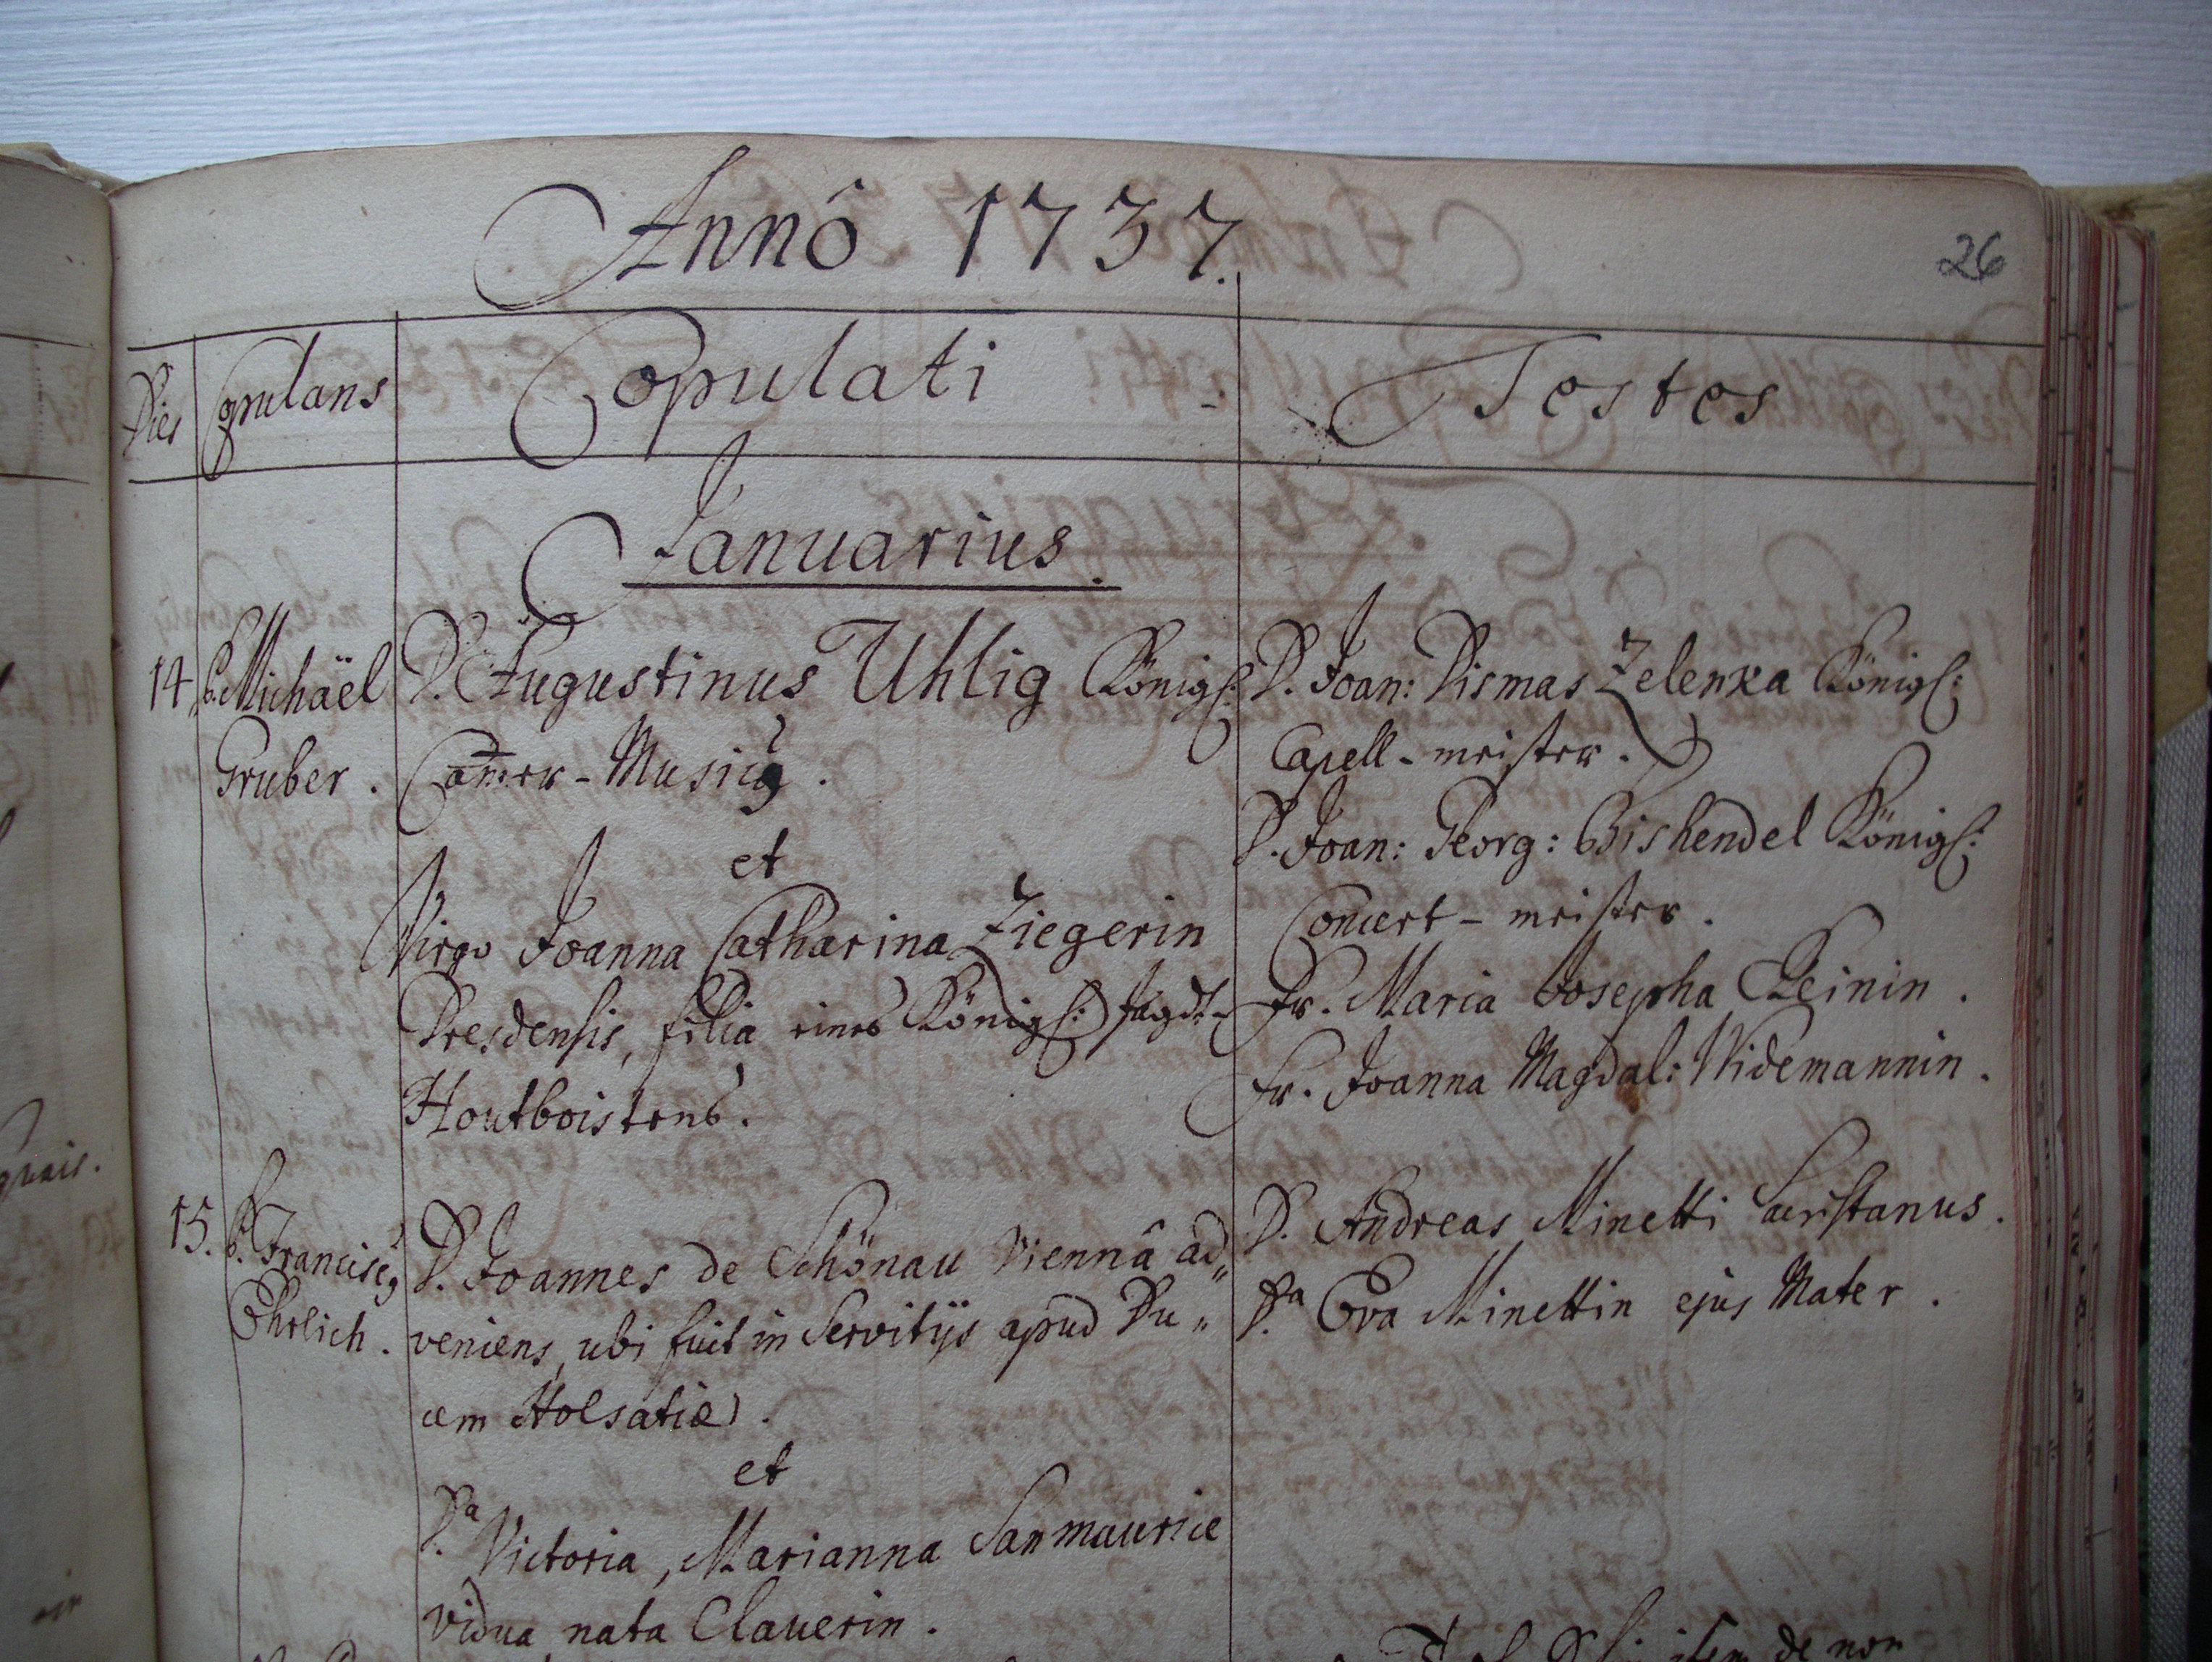 Annô 1737.
26
Dies Copulans Copulati Testes
Januarius.
14. P. Michäel
Gruber.
D. Augustinus Uhlig Königl:
Cam̄er-Musicq.
et
Virgo Joanna Catharina Ziegerin
Dresdensis, filia eines Königl: Jagdt-
Houtboistens.
D. Joan: Dismas Zelenka Königl:
Capell-meister.
D. Joan: Georg: Bishendel Königl:
Concert-meister.
Fr. Maria Josepha Reinin.
Fr. Joanna Magdal: Widemannin.
15. P. Franciscq
Ehrlich.
D. Joannes de Schönau Viennâ ad„
veniens, ubi fuit in Servitijs apud Du„
cem Holsatiæ.
et
Da Victoria, Marianna Sanmaurice
vidua nata Clauerin.
D. Andreas Minetti Sacristanus.
Da Eva Minettin ejus Mater.
item de non